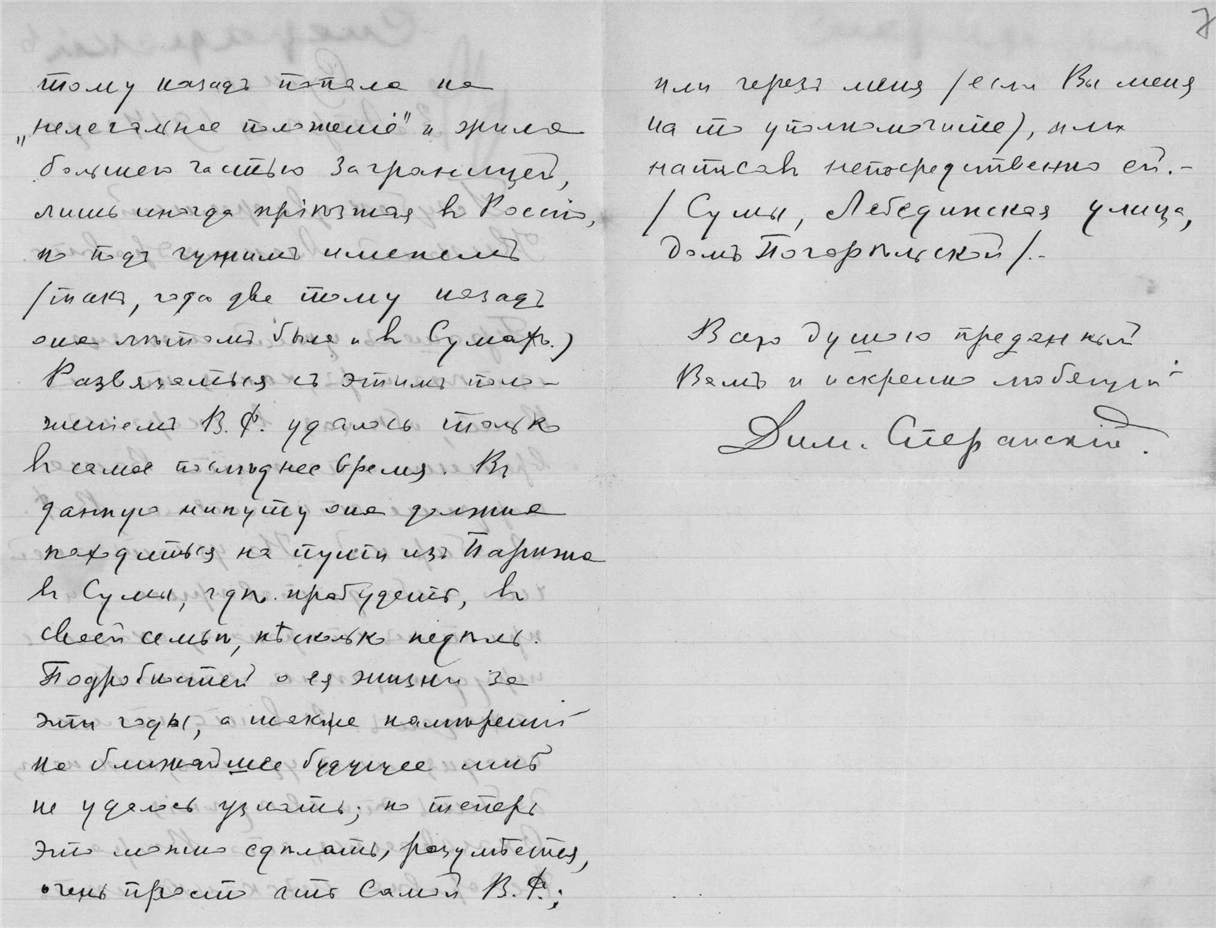 тому назадъ попала на
„нелегальное положенiе" и жила
большею частью заграницей,
лишь иногда прiѣзжая въ Россiю,
но подъ чужимъ именемъ
/такъ, года два тому назадъ
она лѣтомъ была и въ Сумахъ.)
Развязаться съ этимъ поло-
женiемъ В. Ф. удалось только
въ самое послѣднее время. Въ
данную минуту она должна
находиться на пути изъ Парижа
въ Сумы, гдѣ пробудетъ, въ
своей семьѣ, нѣсколько недѣль.
Подробностей о ея жизни за
эти годы, а также намѣренiй
на ближайшее будущее мнѣ
не удалось узнать; но теперь
это можно сдѣлать, разумѣется,
очень просто отъ самой В. Ф.;
7
или черезъ меня /если Вы меня
на то уполномочите), или
написавъ непосредственно ей.-
/Сумы, Лебединская улица,
домъ Погорѣльской/.-
Всею душою преданный
Вамъ и искренно любящiй
Дим. Сперанскiй.